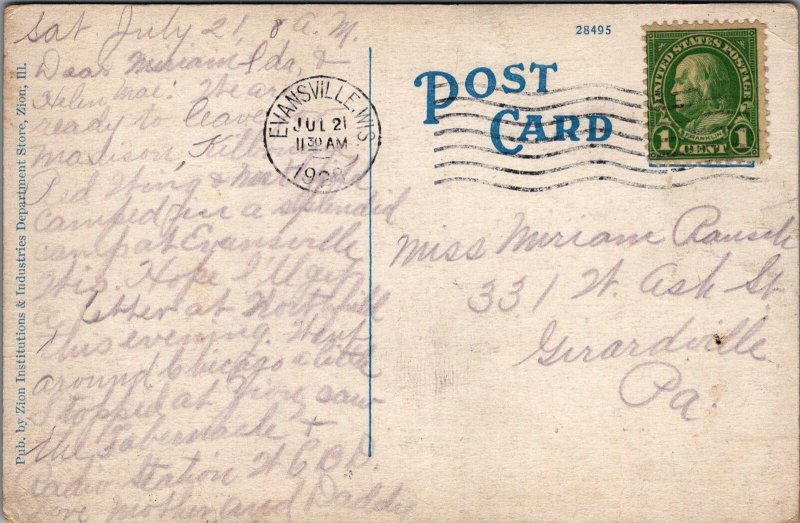 Sat July 21, 8 A.M.
Dear Miriam Ida, &
Helen Mae: We are
ready to leave
Madison,
Red Wing & Northfield
camped in a splendid
camp at Evansville
Wis. Hope I'll get
a letter at Northfield
this evening. Went
around Chicago a little
stopped at Zion, saw
the Tabernacle +
radio station W.C.B.D.
Love Mother and Daddy
Pub. by Zion Institutions & Industries Department Store, Zion, Ill.
EVANSVILLE, WIS.
JUL 21
11 30 AM
1928
28495
POST
CARD
UNITED STATES POSTAGE
FRANKLIN
1 CENT 1
Miss Miriam Rausch
331 W. Ash St.
Girardville
Pa.